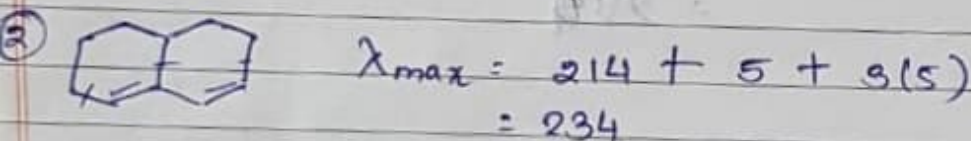 2 λmax = 214 + 5 + 3(5)
= 234